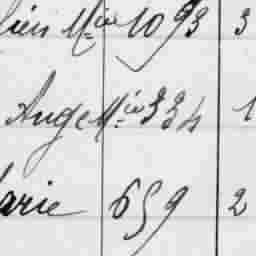 Mie 1093 3
Ange Mie 334 1
arie 659 2